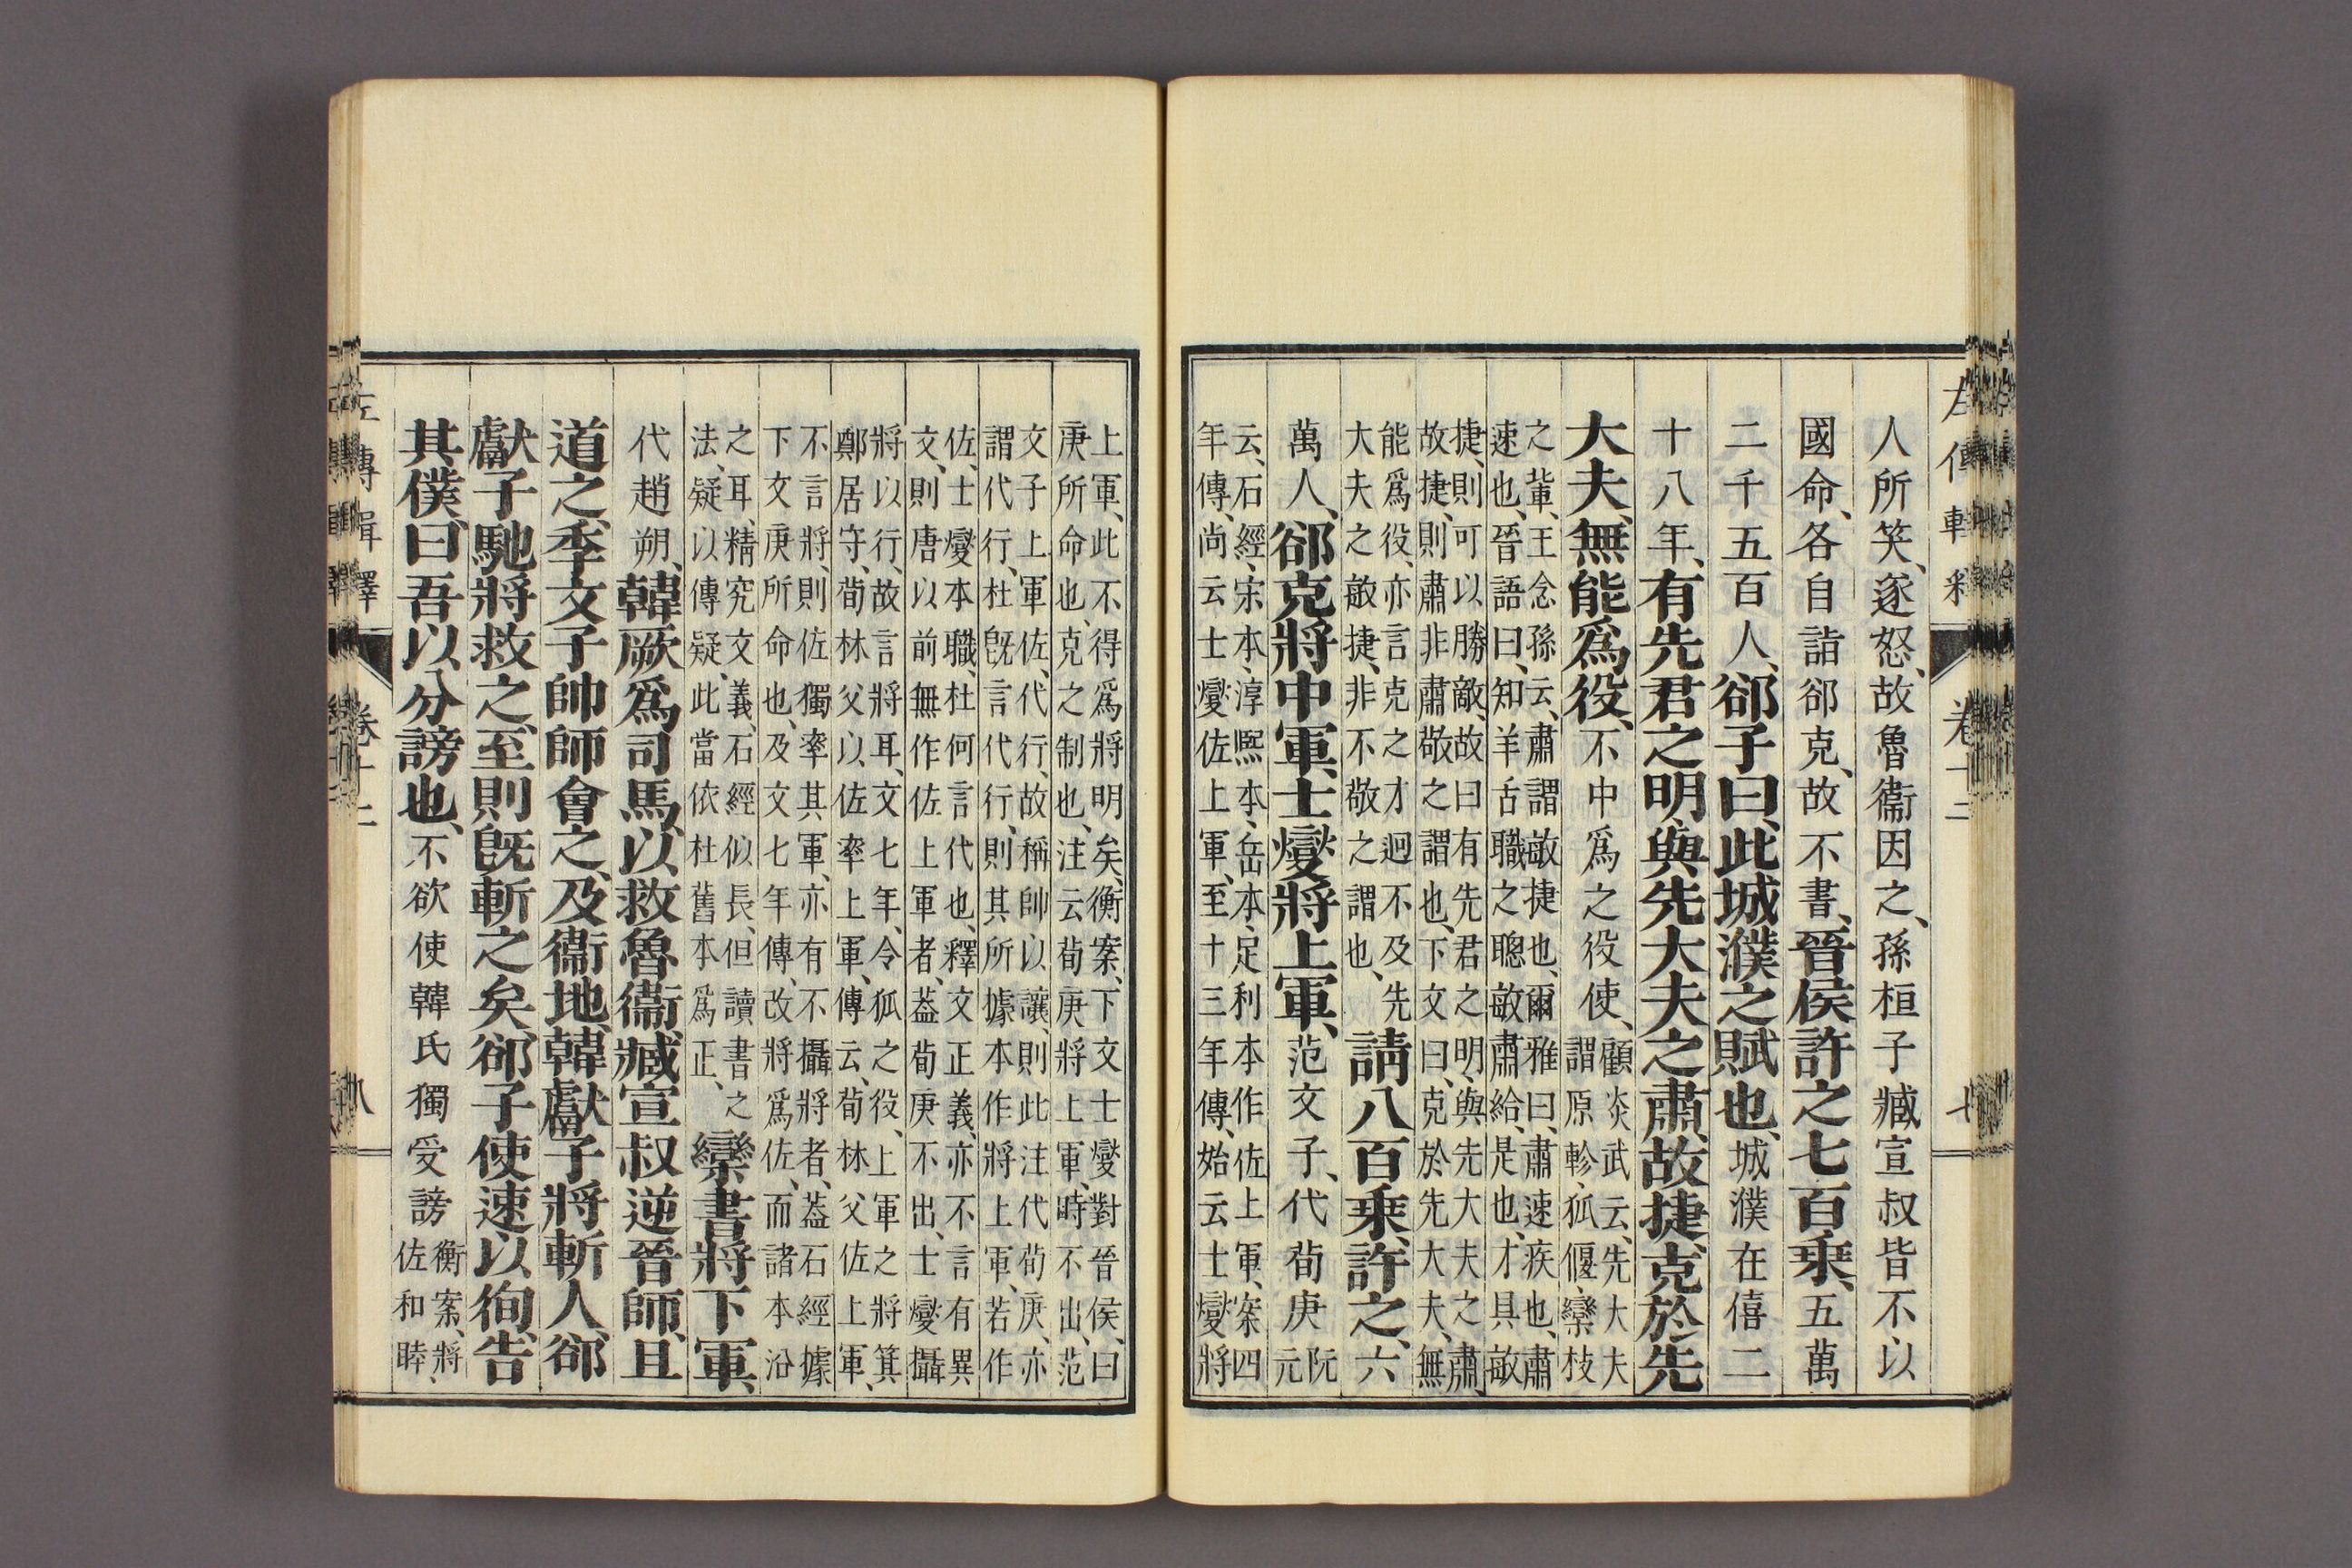 左傳輯釋 卷十二 七
人所笑、遂怒、故魯衞因之、孫桓子臧宣叔皆不以
國命、各自詣郤克、故不書、晉侯許之七百乘、五萬
二千五百人、郤子曰、此城濮之賦也、城濮在僖二
十八年、有先君之明、與先大夫之肅、故捷、克於先
大夫、無能爲役、不中爲之役使、顧炎武云、先大夫
謂原軫、狐偃、欒枝
之輩、王念孫云、肅謂敏捷也、爾雅曰、肅速疾也、肅
速也、晉語曰、知羊舌職之聰敏肅給、是也、才具敏
捷、則可以勝敵、故曰有先君之明、與先大夫之肅、
故捷、則肅非肅敬之謂也、下文曰、克於先大夫、無
能爲役、亦言克之才迥不及先
大夫之敏捷、非不敬之謂也、請八百乘、許之、六
萬人、郤克將中軍、士燮將上軍、范文子、代荀庚阮
元
云、石經、宋本、淳熙本、岳本、足利本作佐上軍、案四
年傳、尚云士燮佐上軍、至十三年傳、始云士燮將
上軍、此不得爲將明矣、衡案、下文士燮對晉侯、曰
庚所命也、克之制也、注云荀庚將上軍、時不出、范
文子上軍佐、代行、故稱帥以讓、則此注代荀庚、亦
謂代行、杜旣言代行、則其所據本作將上軍、若作
佐、士燮本職、杜何言代也、釋文正義、亦不言有異
文、則唐以前無作佐上軍者、葢荀庚不出、士燮攝
將以行、故言將耳、文七年、令狐之役、上軍之將箕
鄭居守、荀林父以佐率上軍、傳云、荀林父佐上軍、
不言將、則佐獨率其軍、亦有不攝將者、葢石經據
下文庚所命也、及文七年傳、改將爲佐、而諸本沿
之耳、精究文義、石經似長、但讀書之
法、疑以傳疑、此當依杜舊本爲正、欒書將下軍、
代趙朔、韓厥爲司馬、以救魯衞、臧宣叔逆晉師、且
道之、季文子帥師會之、及衞地、韓獻子將斬人、郤
獻子馳將救之、至則旣斬之矣、郤子使速以徇、告
其僕、曰吾以分謗也、不欲使韓氏獨受謗衡案、將
佐和睦、
左傳輯釋 卷十二 八